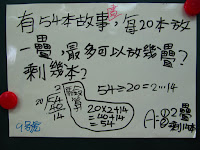 有54本故事書,每20本放
一疊,最多可以放幾疊?
剩幾本?
54÷20=2…14
2
20)54
40
14
驗算
20×2+14
=40+14
=54
A:2疊
剩14本
9號